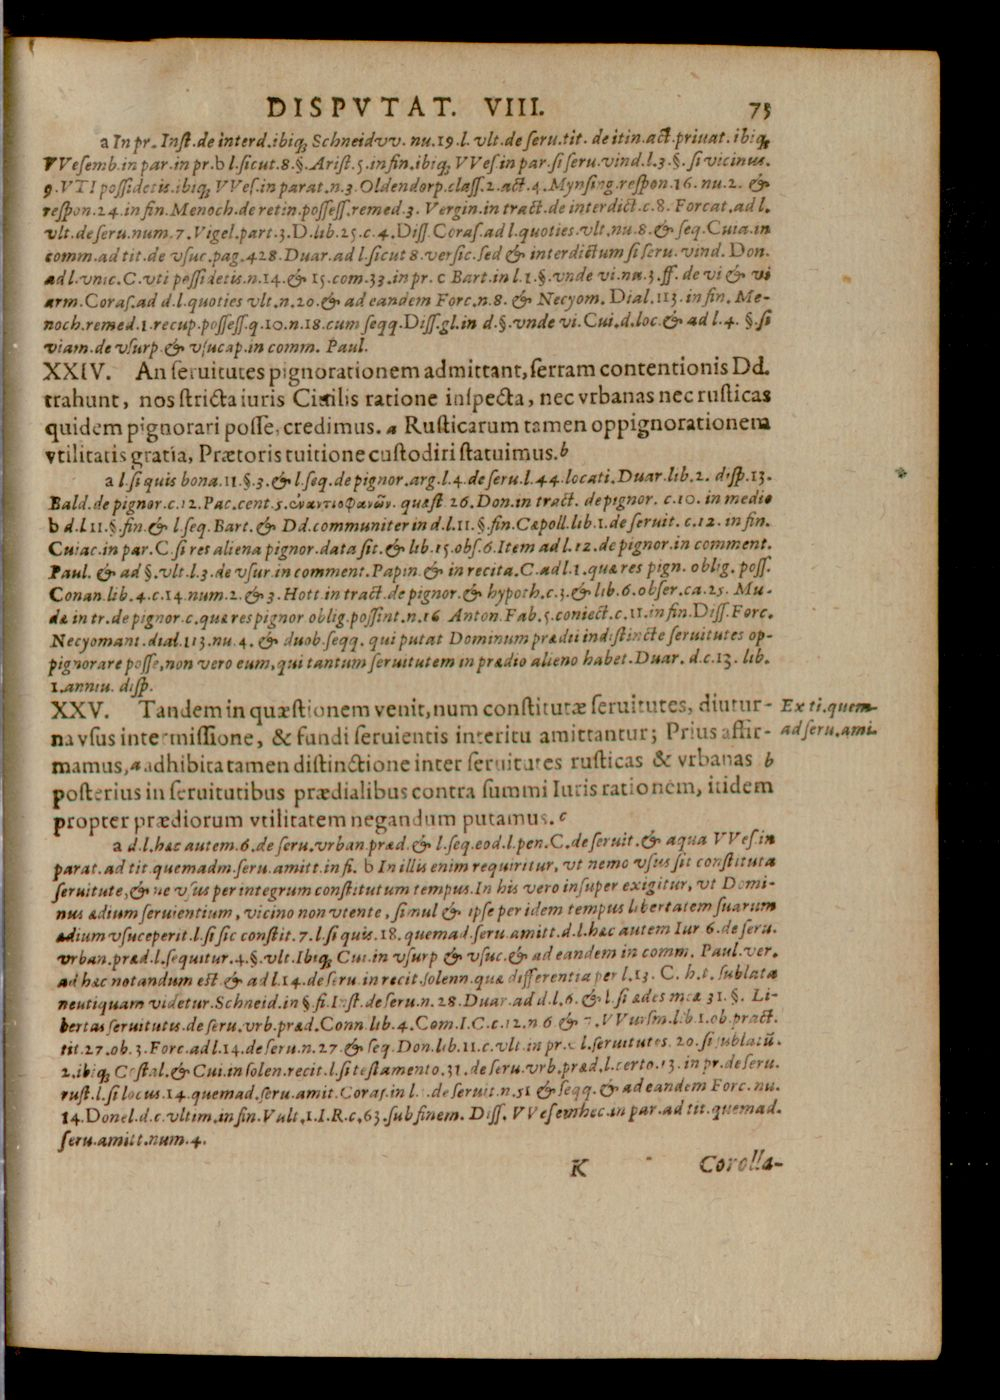 DISPVTAT. VIII. 75
a In pr. Inst. de interd. ibiq; Schneidvv. nu. 19. l. vlt. de seru. tit. de itin. act. priuat. ibiq;
VVesemb. in par. in pr. b l. sicut. 8. §. Arist. 5. in fin. ibiq; VVes. in par. si seru. vind. l. 3. §. si vicinus.
9. VTI possidetis. ibiq; VVes. in parat. n. 3. Oldendorp. class. 2. act. 4. Mynsing. respon. 16. nu. 2. &
respon. 24. in fin. Menoch. de retin. possess. remed. 3. Vergin. in tract. de interdict. c. 8. Forcat. ad l.
vlt. de seru. num. 7. Vigel. part. 3. D. lib. 25. c. 4. Diss. Coras. ad l. quoties. vlt. nu. 8. & seq. Cuia. in
comm. ad tit. de vsuc. pag. 428. Duar. ad l. sicut 8. versic. sed & interdictum si seru. vind. Don.
ad l. vnic. C. vti possidetis. n. 14. & 15. com. 33. in pr. c Bart. in l. 1. §. vnde vi. nu. 3. ff. de vi & vi
arm. Coras. ad d. l. quoties vlt. n. 20. & ad eandem Forc. n. 8. & Necyom. Dial. 113. in fin. Me-
noch. remed. 1. recup. possess. q. 10. n. 18. cum seqq. Diss. gl. in d. §. vnde vi. Cui. d. loc. & ad l. 4. §. si
viam. de vsurp. & vsucap. in comm. Paul.
XXIV. An seruitutes pignorationem admittant, serram contentionis Dd.
trahunt, nos stricta iuris Ciuilis ratione inspecta, nec vrbanas nec rusticas
quidem pignorari posse, credimus. a Rusticarum tamen oppignorationem
vtilitatis gratia, Prætoris tuitione custodiri statuimus. b
a l. si quis bona. 11. §. 3. & l. seq. de pignor. arg. l. 4. de seru. l. 44. locati. Duar. lib. 2. disp. 13.
Bald. de pignor. c. 12. Pac. cent. 5. ἐναντιοφανῶν. quæst 26. Don. in tract. de pignor. c. 10. in medio
b d. l 11. §. fin. & l. seq. Bart. & Dd. communiter in d. l. 11. §. fin. Cæpoll. lib. 1. de seruit. c. 12. in fin.
Cuiac. in par. C. si res aliena pignor. data sit. & lib. 15. obs. 6. Item ad l. 12. de pignor. in comment.
Paul. & ad §. vlt. l. 3. de vsur. in comment. Papin & in recita. C. ad l. 1. quæ res pign. oblig. poss.
Conan. lib. 4. c. 14. num. 2. & 3. Hott in tract. de pignor. & hypoth. c. 3. & lib. 6. obser. ca. 25. Mu-
dæ in tr. de pignor. c. quæ res pignor oblig. possint. n. 16 Anton. Fab. 5. coniect. c. 11. in fin. Diss. Forc.
Necyomant. dial. 113. nu. 4. & duob. seqq. qui putat Dominum prædii indistincte seruitutes op-
pignorare posse, non vero eum, qui tantum seruitutem in prædio alieno habet. Duar. d. c. 13. lib.
1. anniu. disp.
XXV. Tandem in quæstionem venit, num constitutæ seruitutes, diutur-
na vsus intermissione, & fundi seruientis interitu amittantur; Prius affir-
mamus, a adhibita tamen distinctione inter seruitutes rusticas & vrbanas b
posterius in seruitutibus prædialibus contra summi Iuris rationem, itidem
propter prædiorum vtilitatem negandum putamus. c
Ex ti. quem-
ad seru. ami.
a d. l. hæc autem. 6. de seru. vrban. præd. & l. seq. eod. l. pen. C. de seruit. & aqua VVes. in
parat. ad tit. quemadm. seru. amitt. in fi. b In illis enim requiritur, vt nemo vsus sit constituta
seruitute, & ne vsus per integrum constitutum tempus. In his vero insuper exigitur, vt Domi-
nus ædium seruientium, vicino non vtente, simul & ipse per idem tempus libertatem suarum
ædium vsuceperit. l. si sic constit. 7. l. si quis. 18. quemad. seru. amitt. d. l. hæc autem Iur 6. de seru.
vrban. præd. l. sequitur. 4. §. vlt. Ibiq; Cui. in vsurp & vsuc. & ad eandem in comm. Paul. ver.
ad hæc notandum est & ad l. 14. de seru. in recit. solenn. quæ differentia per l. 13. C. h. t. sublata
neutiquam videtur. Schneid. in §. fi. Inst. de seru. n. 28. Duar. ad d. l. 6. & l. si ædes meæ 31. §. Li-
bertas seruitutis. de seru. vrb. præd. Conn. lib. 4. Com. I. C. c. 12. n 6 & 7. VVurm. lib. 1. ob. pract.
tit. 27. ob. 3. Forc. ad l. 14. de seru. n. 27. & seq. Don. lib. 11. c. vlt in pr. c l. seruitutes. 20. si sublatū.
2. ibiq; Costal. & Cui. in solen. recit. l. si testamento. 31. de seru. vrb. præd. l. certo. 13. in pr. de seru.
rust. l. si locus. 14. quemad. seru. amit. Coras. in l. de seruit. n. 51 & seqq. & ad eandem Forc. nu.
14. Donel. d. c. vltim. in fin. Vult. 1. I. R. c. 63. sub finem. Diss. VVesembec. in par. ad tit. quemad.
seru. amitt. num. 4.
K Corolla-